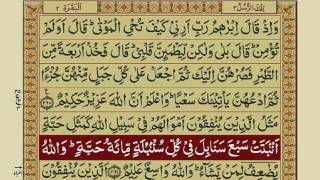 تِلْكَ الرُّسُلُ ٣
اَلْبَقَرَة ٢
وَاِذْ قَالَ اِبْرٰهٖمُ رَبِّ اَرِنِیْ كَیْفَ تُحْیِ الْمَوْتٰىؕ قَالَ اَوَلَمْ
تُؤْمِنْؕ قَالَ بَلٰى وَلٰكِنْ لِّیَطْمَىِٕنَّ قَلْبِیْؕ قَالَ فَخُذْ اَرْبَعَةً مِّنَ
الطَّیْرِ فَصُرْهُنَّ اِلَیْكَ ثُمَّ اجْعَلْ عَلٰى كُلِّ جَبَلٍ مِّنْهُنَّ جُزْءًا
ثُمَّ ادْعُهُنَّ یَاْتِیْنَكَ سَعْیًاؕ وَاعْلَمْ اَنَّ اللّٰهَ عَزِیْزٌ حَكِیْمٌ ﴿۲۶۰﴾
مَثَلُ الَّذِیْنَ یُنْفِقُوْنَ اَمْوَالَهُمْ فِیْ سَبِیْلِ اللّٰهِ كَمَثَلِ حَبَّةٍ
اَنْۢبَتَتْ سَبْعَ سَنَابِلَ فِیْ كُلِّ سُنْۢبُلَةٍ مِّائَةُ حَبَّةٍؕ وَاللّٰهُ
یُضٰعِفُ لِمَنْ یَّشَآءُؕ وَاللّٰهُ وَاسِعٌ عَلِیْمٌ ﴿۲۶۱﴾ اَلَّذِیْنَ یُنْفِقُوْنَ